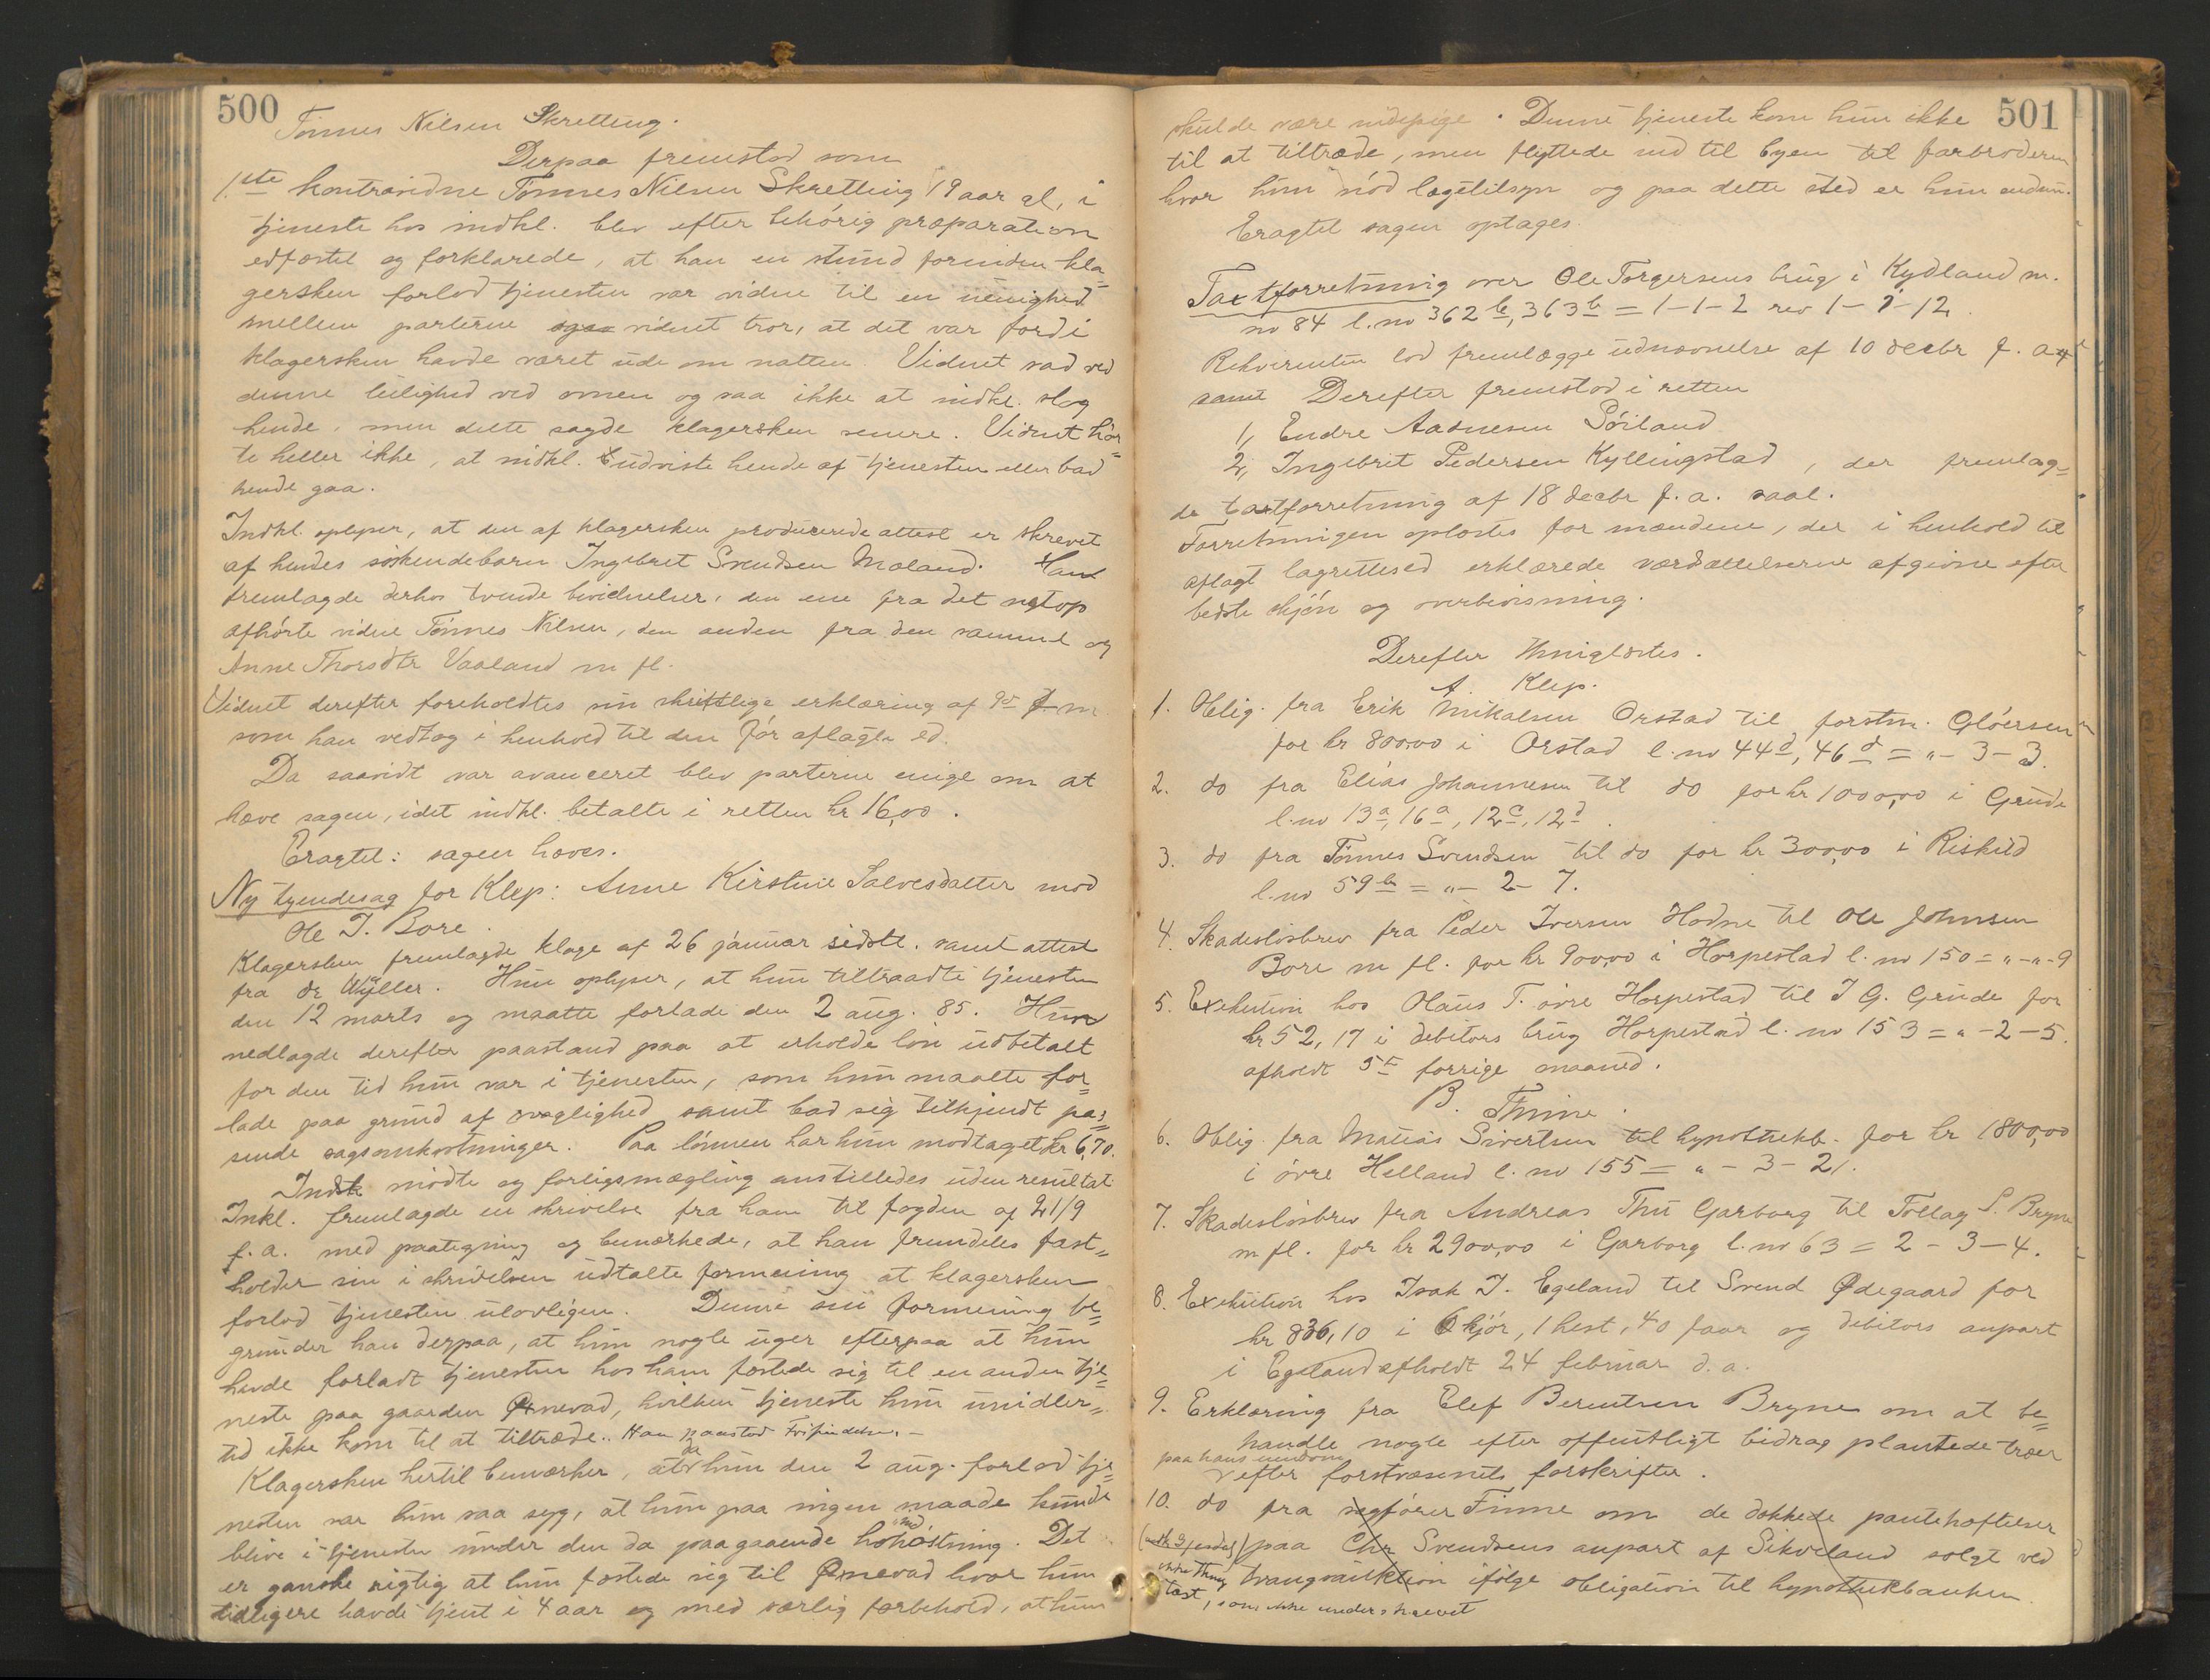 500
Tönnes Nilsen Skretting.
Derpaa fremstod som
1.ste kontravidne Tönnes Nilsen Skretting 19 aar gl, i
tjeneste hos indkl. blev efter behörig præparation
edfæstet og forklarede, at han en stund forinden kla=
gersken forlod tjenesten var vidne til en uenighed
mellem parterne vidnet tror, at det var fordi
klagersken havde været ude om natten. Vidnet sad ved
denne leilighed ved ovnen og saa ikke at indkl. slog
hende, men dette sagde klagersken senere. Vidnet hör=
te heller ikke, at indkl. udviste hende af tjenesten eller bad
hende gaa.
Indkl. oplyser, at den af klagersken producerede attest er skrevet
af hendes söskendebarn Ingebret Svendsen Maland. Han
fremlagde derhos tvende bividnelser, den ene fra det netop
afhörte vidne Tönnes Nilsen, den anden fra den samme og
Anne Thorsdtr Vaaland m fl.
Vidnet derefter foreholdtes sin skriftlige erklæring af 9de f. m
som han vedtog i henhold til den för aflagte ed.
Da saavidt var avanceret blev parterne enige om at
hæve sagen, idet indkl. betalte i retten kr 16,00.
Eragtet: sagen hæves.
Ny tyendesag for Klep: Anne Kirstine Salvesdatter mod
Ole T. Bore.
Klagersken fremlagde klage af 26 januar sidstl. samt attest
fra dr Wyller. Hun oplyser, at hun tiltraadte tjenesten
den 12 marts og maatte forlade den 2 aug. 85. Hun
nedlagde derefter paastand paa at erholde lön udbetalt
for den tid hun var i tjenesten, som hun maatte for=
lade paa grund af svaglighed samt bad sig tilkjendt pas=
sende sagsomkostninger. Paa lönnen har hun modtaget kr 6,70.
Indst mödte og forligsmægling anstilledes uden resultat
Inkl. fremlagde en skrivelse fra ham til fogden af 21/9
f. a. med paategning og bemærkede, at han fremdeles fast=
holder sin i skrivelsen udtalte formening at klagersken
forlod tjenesten ulovligen. Denne sin formening be=
grunder han derpaa, at hun nogle uger efterpaa at hun
havde forladt tjenesten hos ham fæstede sig til en anden tje=
neste paa gaarden Öxnevad, hvilken tjeneste hun imidler=
tid ikke kom til at tiltræde. Han paastod Frifindelse. –
Klagersken hertil bemærker, at da hun den 2 aug. forlod tje=
nesten var hun saa syg, at hun paa ingen maade kunde
blive i tjenesten under den da paagaaende höindhöstning. Det
er ganske rigtig at hun fæstede sig til Öxnevad hvor hun
tidligere havde tjent i 4 aar og med særlig forbehold, at hun
501
skulde være indepige. Denne tjeneste kom hun ikke
til at tiltræde, men flyttede ind til byen til farbroderen
hvor hun nöd lægetilsyn og paa dette sted er hun endnu.
Eragtet sagen optages.
Taxtforretning over Ole Torgersens brug i Kydland m.
no 84 l. no 362 b, 363 b = 1-1-2 rev 1-2-12.
Rekvirenten lod fremlægge udnævnelse af 10 decbr f. a
samt Derefter fremstod i retten
1, Endre Aadnesen Söiland
2, Ingebrit Pedersen Kyllingstad, der fremlag=
de taxtforretning af 18 decbr f. a. saal.
Forretningen oplæstes for mændene, der i henhold til
aflagt lagrettesed erklærede værdsættelserne afgivne efter
bedste skjön og overbevisning.
Derefter thinglæstes.
A. Klep.
1. Oblig. fra Erik Mikalsen Orstad til forstm. Glöersen
for kr 800,00 i Orstad l. no 44 d, 46 d = "-3-3.
2. do fra Elias Johannesen til do for kr 1000,00 i Grude
l. no 13 a, 16 a, 12 c, 12 d.
3. do fra Tönnes Svendsen til do for kr 300,00 i Riskild
l. no 59 b = "-2-7.
4. Skadeslösbrev fra Peder Iversen Hodne til Ole Johnsen
Bore m fl. for kr 900,00 i Horpestad l. no 150 = "-"-9
5. Exekution hos Olaus T. övre Horpestad til J G. Grude for
kr 52,17 i debitors brug Horpestad l. no 153 = "-2-5.
afholdt 5te forrige maaned.
B. Thime.
6. Oblig. fra Matias Sivertsen til hypothekb. for kr 1800,00
i övre Helland l. no 155 = "-3-21.
7. Skadeslösbrev fra Andreas Thu Garborg til Tollag S. Bryne
m fl. for kr 2900,00 i Garborg l. no 63 = 2-3-4.
8. Exekution hos Isak J. Egeland til Svend Ødegaard for
kr 836,10 i 6 kjör, 1 hest, 40 faar og debitors anpart
i Egeland afholdt 24 februar d. a.
9. Erklæring fra Elef Berentsen Bryne om at be=
handle nogle efter offentligt bidrag plantede træer
paa hans eiendom
efter forstvæsenets forskrifter.
10. do fra sagförer Finne om de dækkede pantehæftelser
paa Chr Svendsens anpart af Sikveland solgt ved
tvangsauktion ifölge obligation til hypothekbanken.
ikke thing
læst, som ikke underskrevet